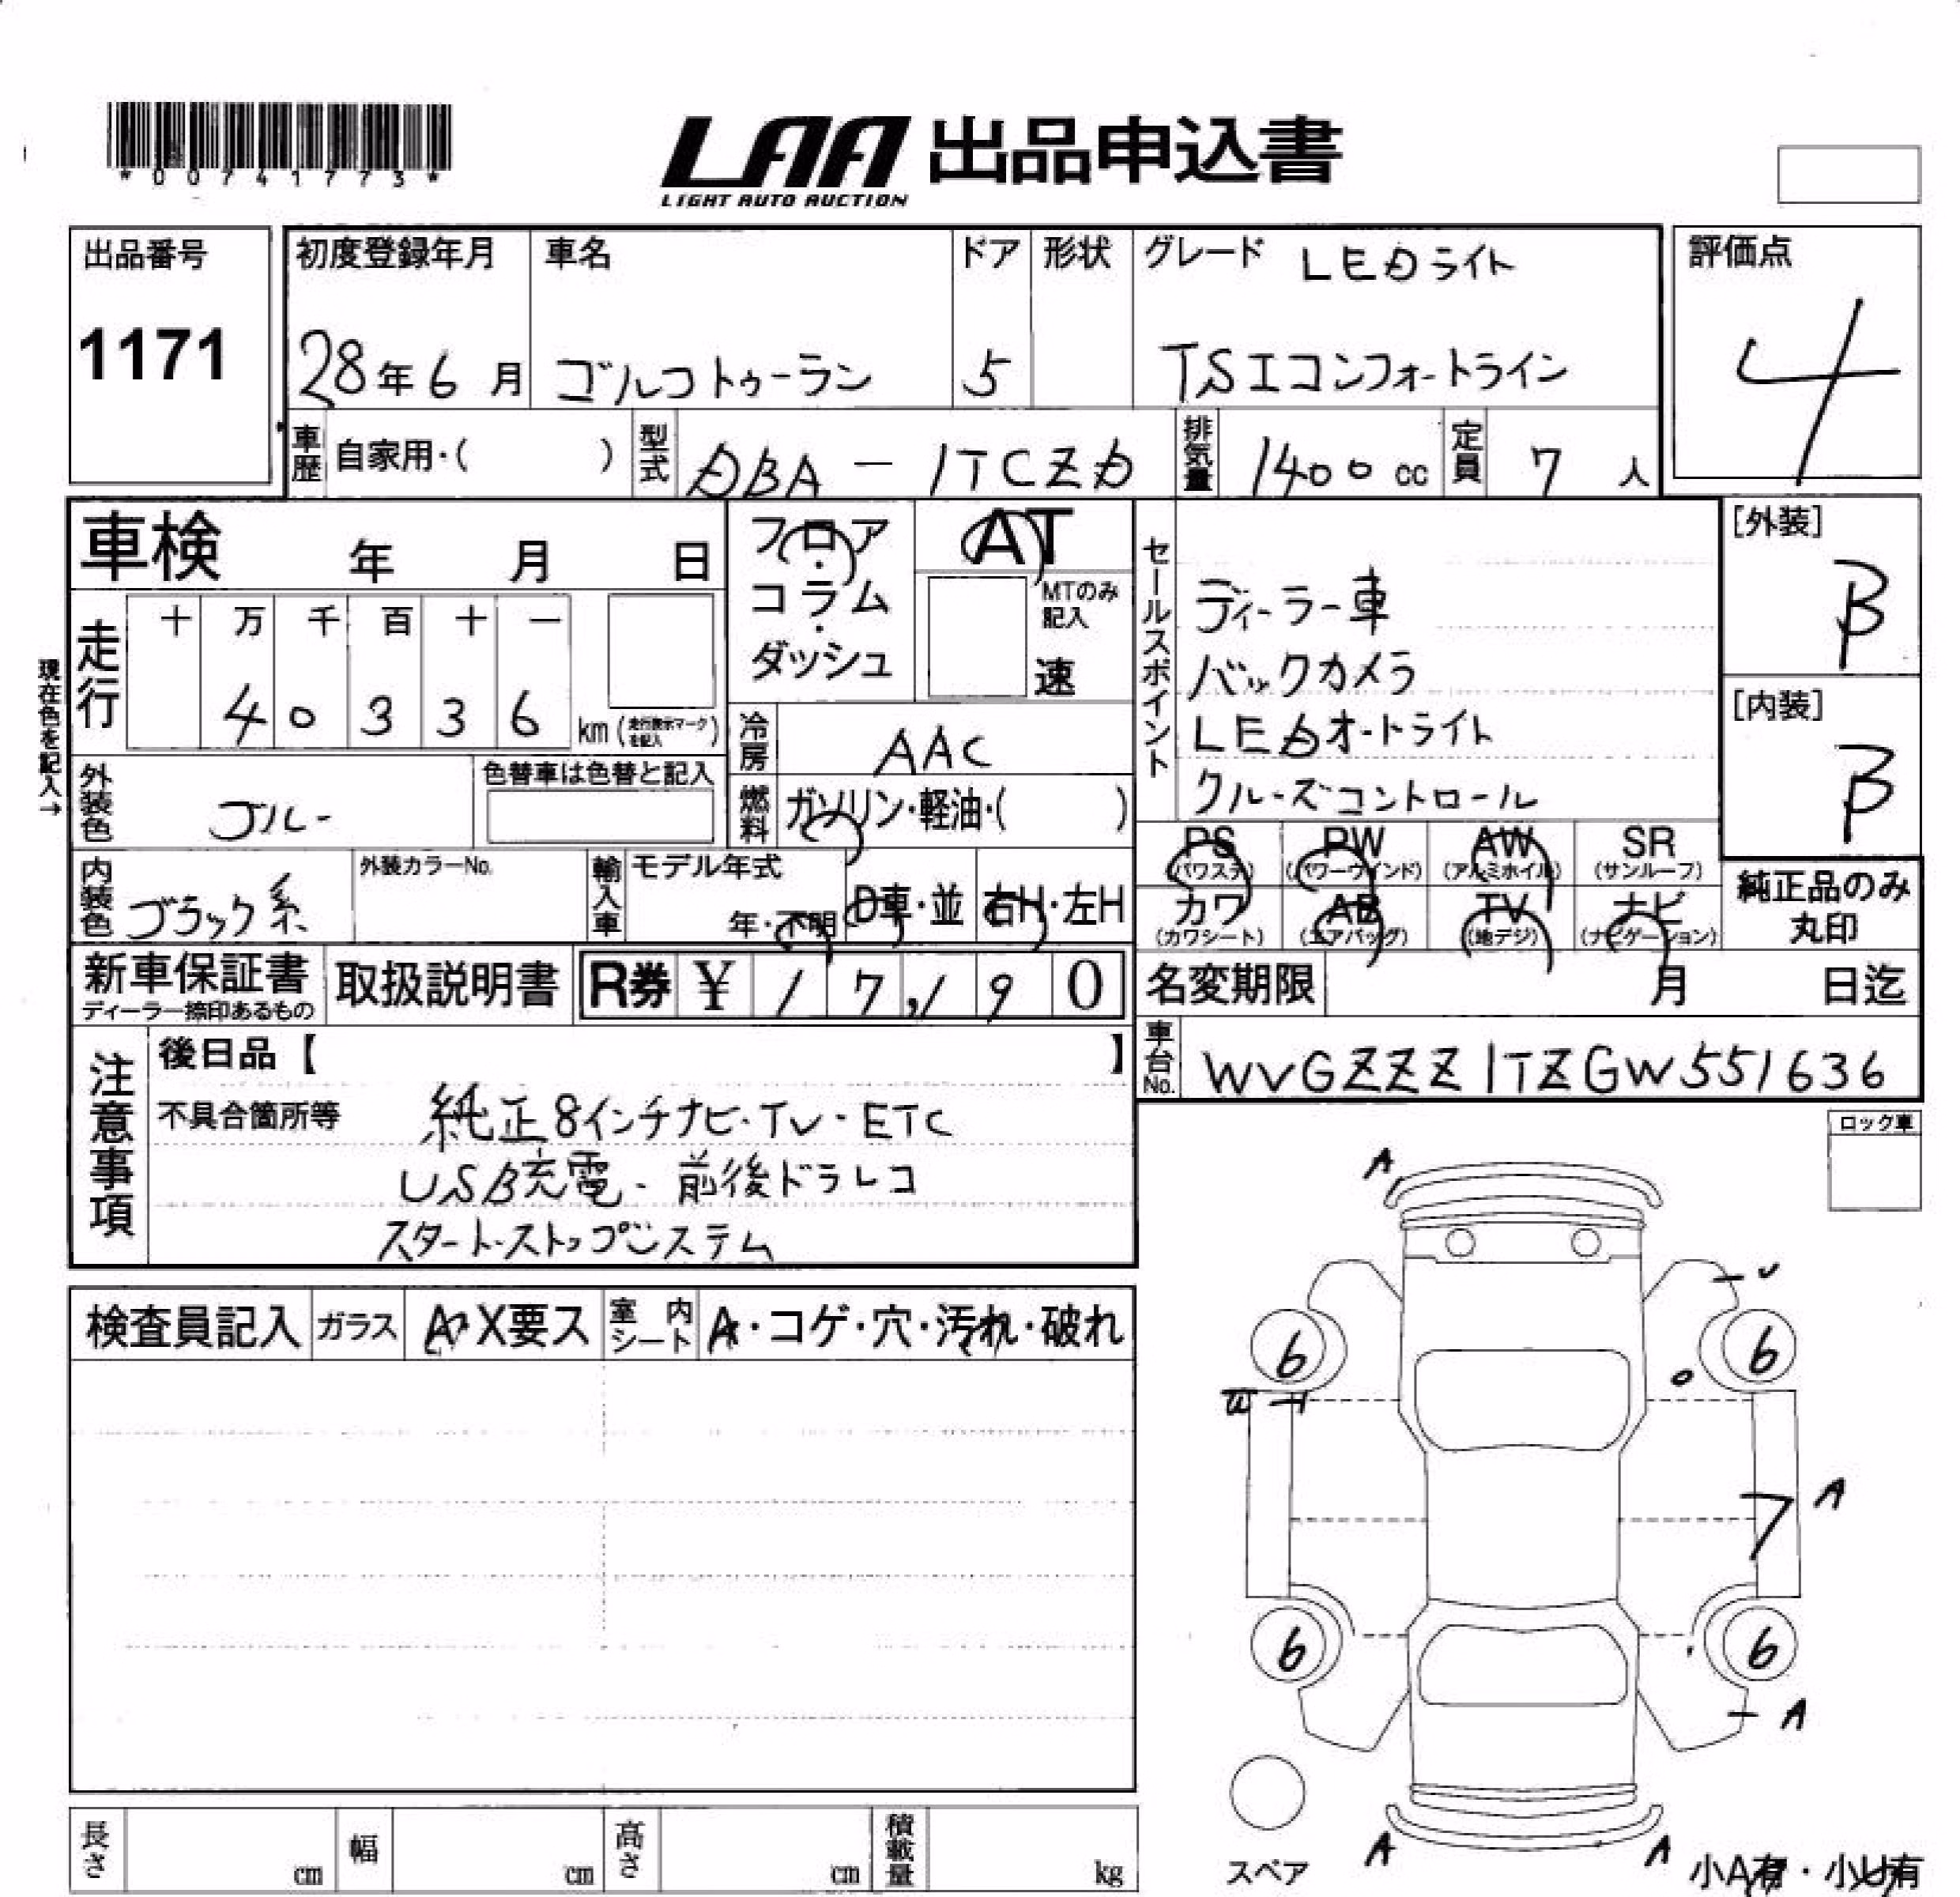 *00741773*
LAA 出品申込書
LIGHT AUTO AUCTION
出品番号
1171
初度登録年月
28年6月
車名
ゴルフトゥーラン
ドア
5
形状
グレード LEDライト
TSIコンフォートライン
評価点
4
車歴 自家用・( )
型式 DBA-1TCZD
排気量 1400cc
定員 7人
車検 年 月 日
フロア・コラム・ダッシュ
AT
MTのみ記入
速
現在色を記入→
走行
十 万 千 百 十 一
4 0 3 3 6 km (走行表示マークを記入)
冷房 AAC
燃料 ガソリン・軽油・( )
外装色 ブルー
色替車は色替と記入
内装色 ブラック系
外装カラーNo.
輸入車
モデル年式
年・不明
D車・並
右H・左H
セールスポイント
ディーラー車
バックカメラ
LEDオートライト
クルーズコントロール
[外装]
B
[内装]
B
PS (パワステ) PW (パワーウインド) AW (アルミホイル) SR (サンルーフ)
カワ (カワシート) AB (エアバッグ) TV (地デジ) ナビ (ナビゲーション)
純正品のみ
丸印
新車保証書
ディーラー捺印あるもの
取扱説明書
R券 ¥ 17,190
名変期限 月 日迄
車台No. WVGZZZ1TZGW551636
注意事項
後日品【 】
不具合箇所等
純正8インチナビ・TV・ETC
USB充電・前後ドラレコ
スタート・ストップシステム
ロック車
検査員記入
ガラス A・X要ス
室内シート A・コゲ・穴・汚れ・破れ
A
6 6
A
6 6
A
スペア
A A
小A有・小U有
長さ cm
幅 cm
高さ cm
積載量 kg